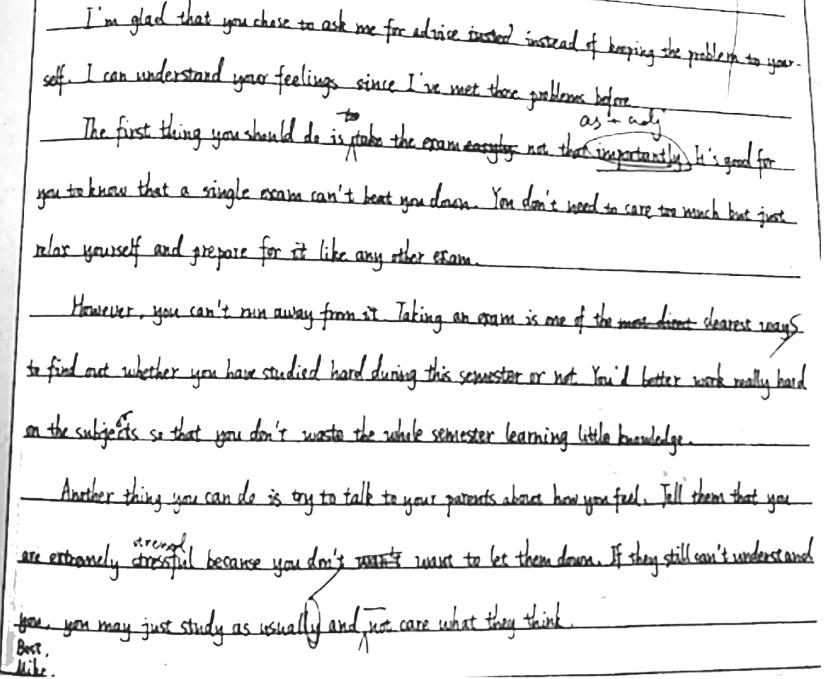 I'm glad that you chose to ask me for advice instead of keeping the problem to your-
self. I can understand your feelings since I've met those problems before.
to as + adj
The first thing you should do is take the exam easyly not that importantly. It's good for
you to know that a single exam can't beat you down. You don't need to care too much but just
relax yourself and prepare for it like any other exam.
However, you can't run away from it. Taking an exam is one of the most direct clearest ways
to find out whether you have studied hard during this semester or not. You'd better work really hard
on the subjects so that you don't waste the whole semester learning little knowledge.
Another thing you can do is try to talk to your parents about how you feel. Tell them that you
are extremely stressful because you don't want to let them down. If they still can't understand
you, you may just study as usually and not care what they think.
Best,
Mike.